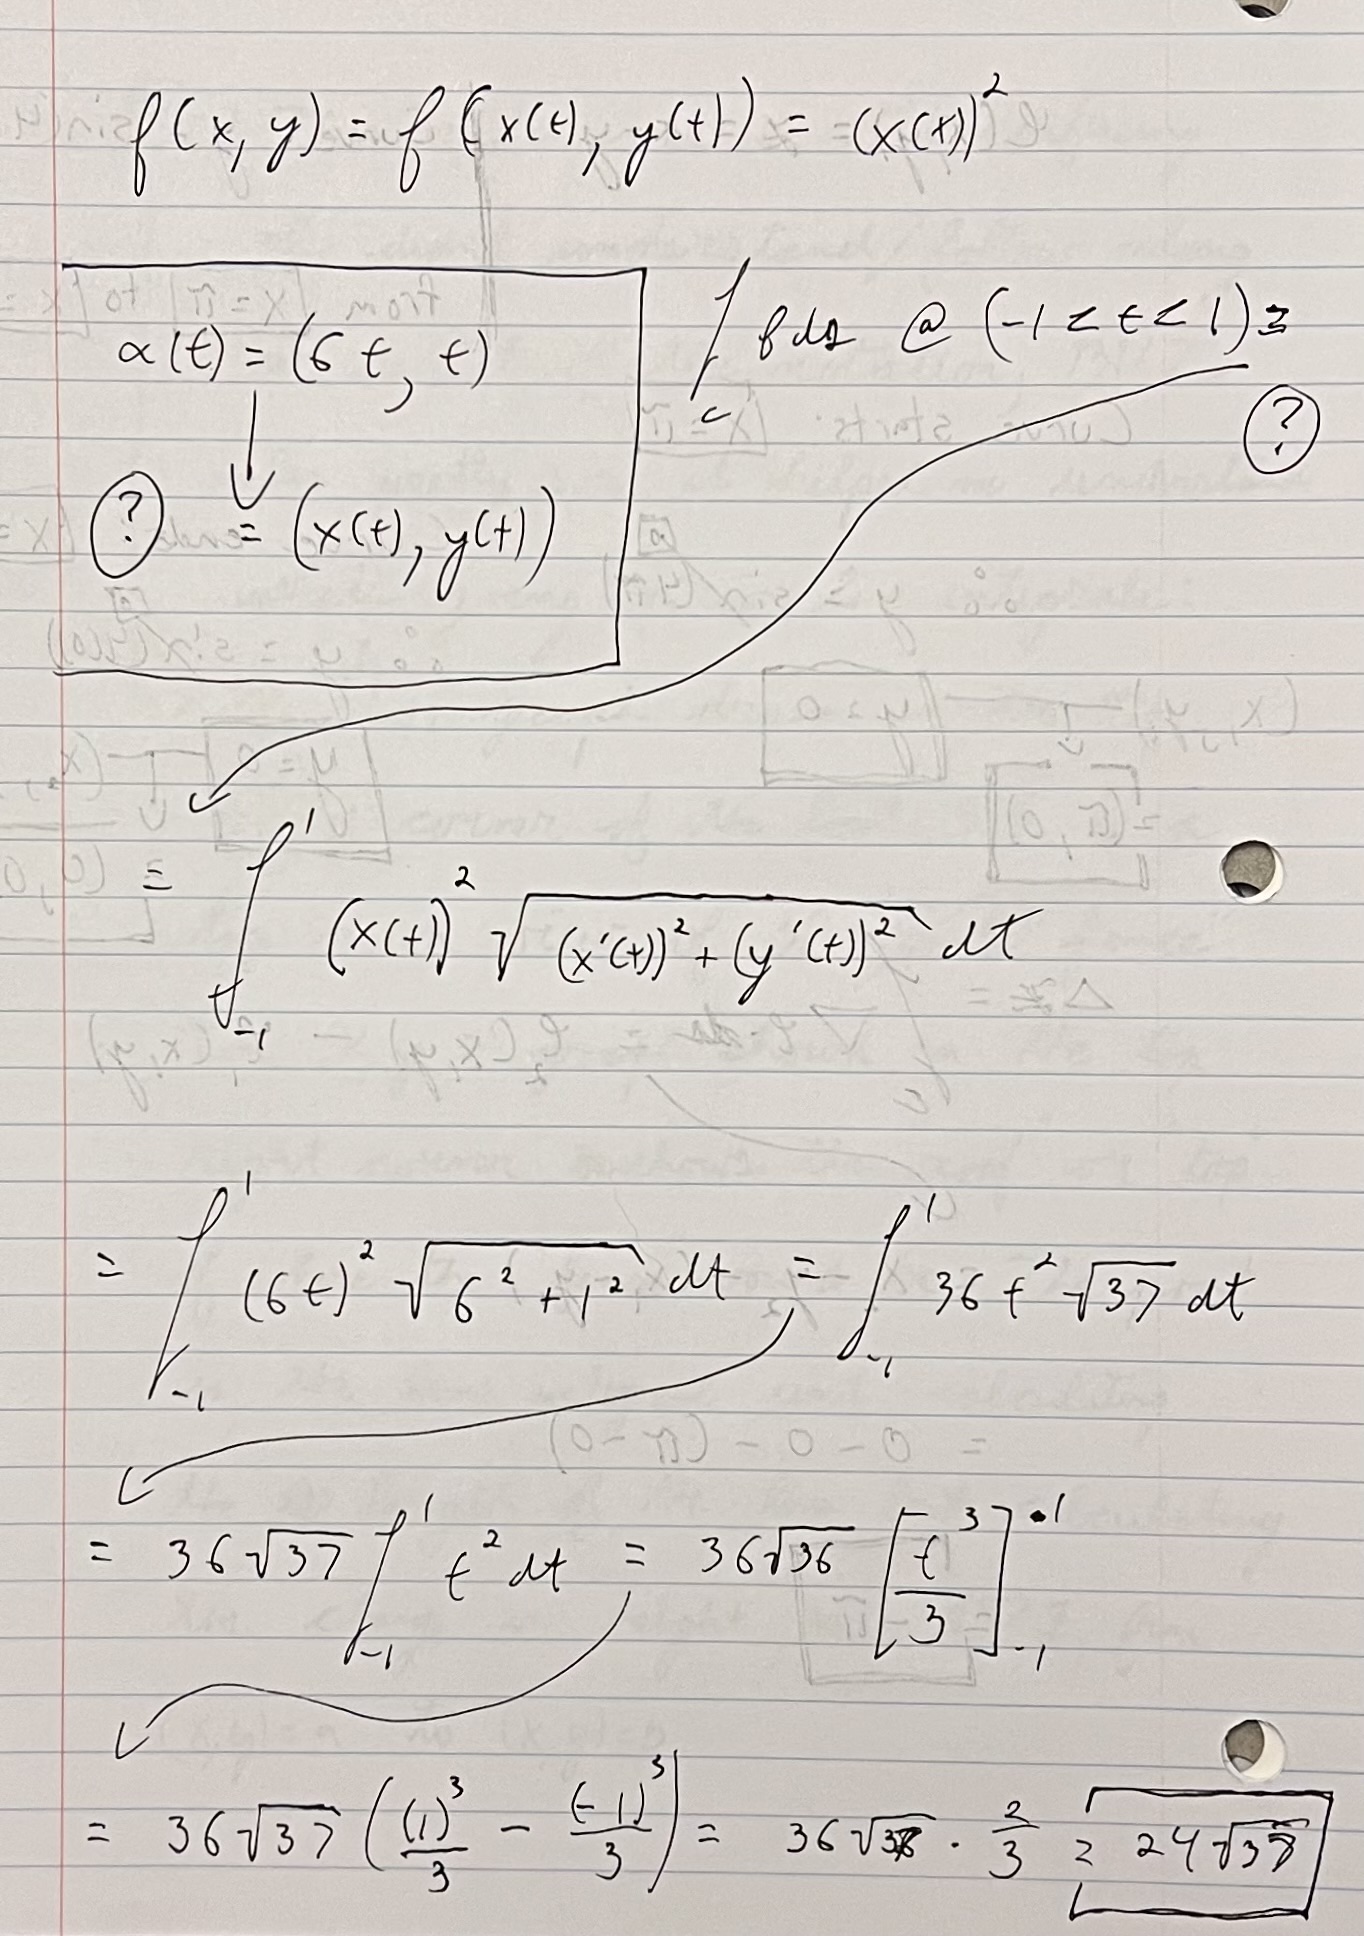 f(x, y) = f(x(t), y(t)) = (x(t))²
α(t) = (6t, t)
? = (x(t), y(t))
∫_c f ds @ (-1 < t < 1) =
?
= ∫_{-1}^{1} (x(t))² √((x'(t))² + (y'(t))²) dt
= ∫_{-1}^{1} (6t)² √(6² + 1²) dt = ∫_{-1}^{1} 36t² √37 dt
= 36√37 ∫_{-1}^{1} t² dt = 36√36 [t³/3]_{-1}^{1}
= 36√37 ((1)³/3 - (-1)³/3) = 36√37 · 2/3 = 24√37